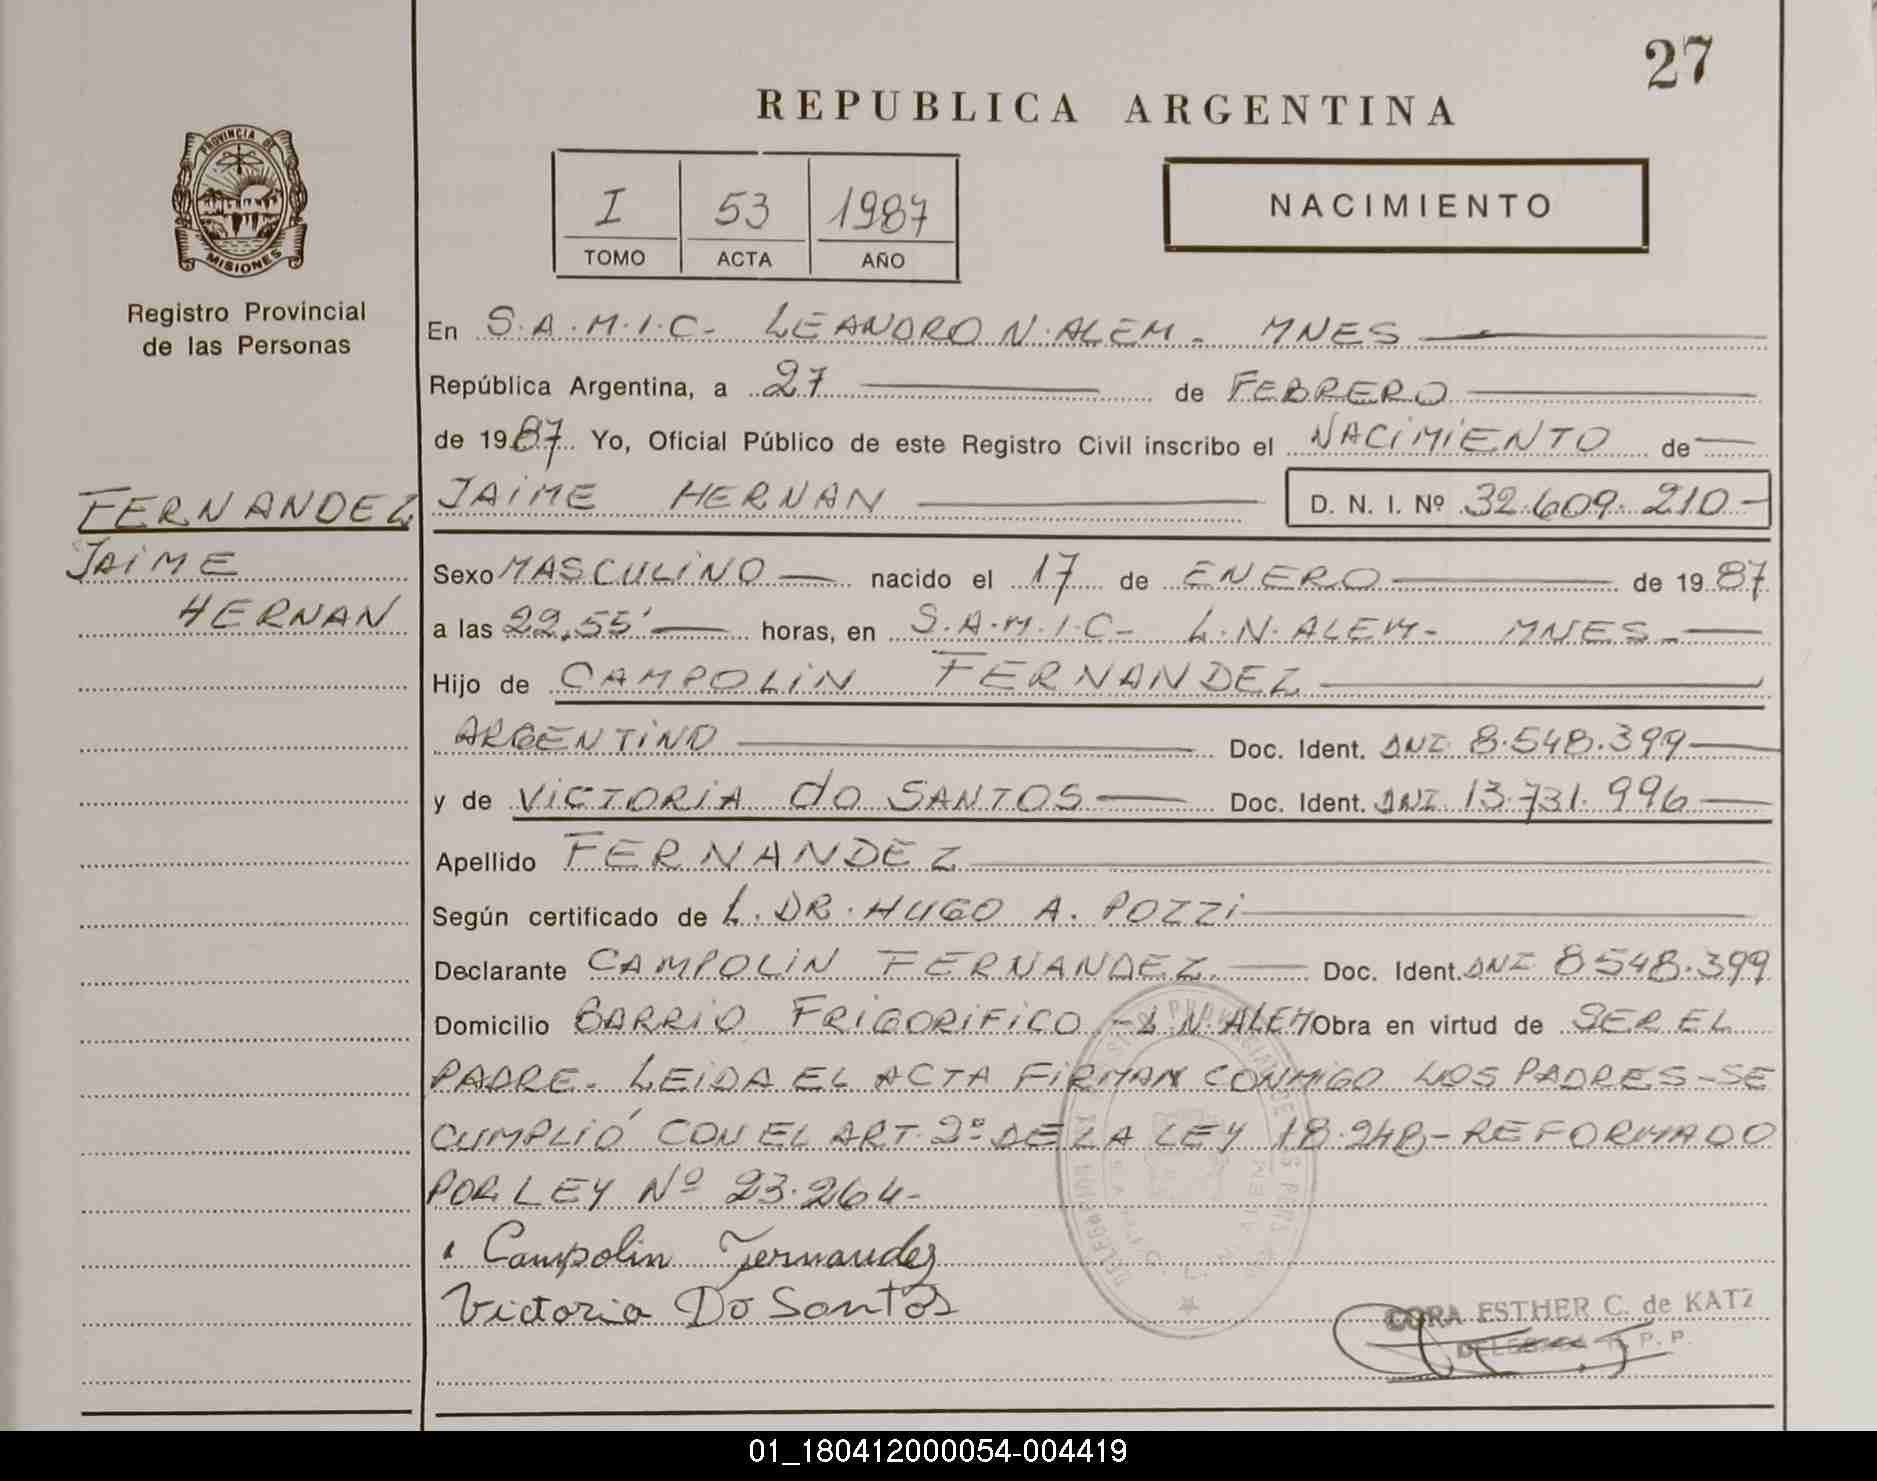 27
REPUBLICA ARGENTINA
PROVINCIA DE
MISIONES
Registro Provincial
de las Personas
I 53 1987
TOMO ACTA AÑO
NACIMIENTO
En S.A.M.I.C- LEANDRO N. ALEM - MNES
República Argentina, a 27 de FEBRERO
de 1987 Yo, Oficial Público de este Registro Civil inscribo el NACIMIENTO de
FERNANDEZ
JAIME
HERNAN
JAIME HERNAN D. N. I. Nº 32.609.210-
Sexo MASCULINO nacido el 17 de ENERO de 1987
a las 22,55' horas, en S.A.M.I.C- L.N. ALEM- MNES-
Hijo de CAMPOLIN FERNANDEZ
ARGENTINO Doc. Ident. DNI 8.548.399
y de VICTORIA do SANTOS Doc. Ident. DNI 13.731.996
Apellido FERNANDEZ
Según certificado de L. DR. HUGO A. POZZI
Declarante CAMPOLIN FERNANDEZ Doc. Ident. DNI 8548.399
Domicilio BARRIO FRIGORIFICO - L N. ALEM Obra en virtud de SER EL
PADRE- LEIDA EL ACTA FIRMAN CONMIGO LOS PADRES-SE
CUMPLIÓ CON EL ART. 2º DE LA LEY 18.248-REFORMADO
POR LEY Nº 23.264-
Campolin Fernandez
Victoria Do Santos
CORA ESTHER C. de KATZ
DELEGADA R.P.P.
01_180412000054-004419